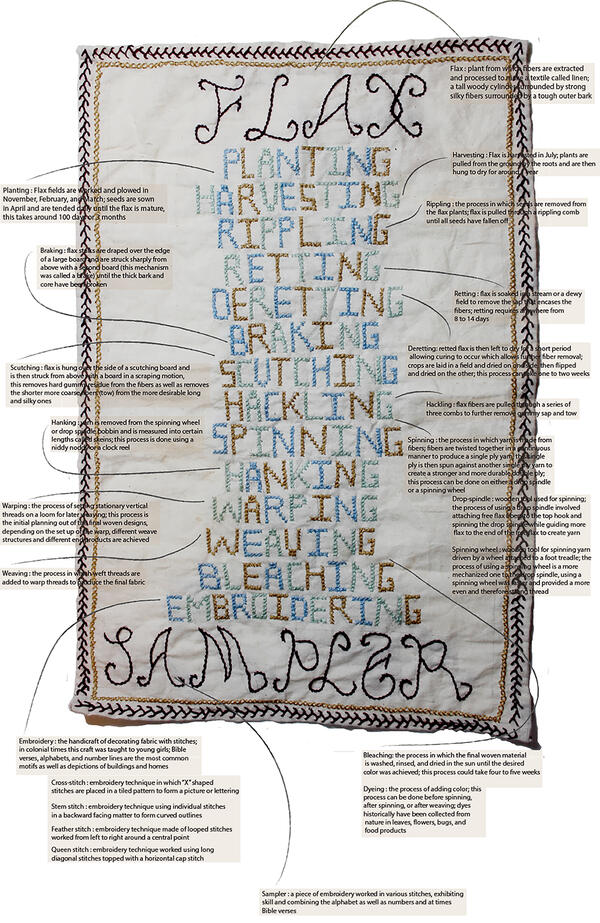 FLAX
PLANTING
HARVESTING
RIPPLING
RETTING
DERETTING
BRAKING
SCUTCHING
HACKLING
SPINNING
HANKING
WARPING
WEAVING
BLEACHING
EMBROIDERING
SAMPLER
Planting : Flax fields are worked and plowed in
November, February, and March; seeds are sown
in April and are tended daily until the flax is mature,
this takes around 100 days or 3 months
Braking : flax stalks are draped over the edge
of a large board and are struck sharply from
above with a second board (this mechanism
was called a brake) until the thick bark and
core have been broken
Scutching : flax is hung over the side of a scutching board and
is then struck from above with a board in a scraping motion,
this removes hard gummy residue from the fibers as well as removes
the shorter more coarse fibers (tow) from the more desirable long
and silky ones
Hanking : yarn is removed from the spinning wheel
or drop spindle bobbin and is measured into certain
lengths called skeins; this process is done using a
niddy noddy or a clock reel
Warping : the process of setting stationary vertical
threads on a loom for later weaving; this process is
the initial planning out of the final woven designs,
depending on the set up of the warp, different weave
structures and different end products are achieved
Weaving : the process in which weft threads are
added to warp threads to produce the final fabric
Flax : plant from which fibers are extracted
and processed to make a textile called linen;
a tall woody cylinder surrounded by strong
silky fibers surrounded by a tough outer bark
Harvesting : Flax is harvested in July; plants are
pulled from the ground by the roots and are then
hung to dry for around a year
Rippling : the process in which seeds are removed
from the flax plants; flax is pulled through a rippling comb
until all seeds have fallen off
Retting : flax is soaked in a stream or a dewy
field to remove the sap that encases the
fibers; retting requires anywhere from
8 to 14 days
Deretting: retted flax is then left to dry for a short period
allowing curing to occur which allows further fiber removal;
crops are laid in a field and dried on one side then flipped
and dried on the other; this process can take one to two weeks
Hackling : flax fibers are pulled through a series of
three combs to further remove gummy sap and tow
Spinning : the process in which yarn is made from
fibers; fibers are twisted together in a continuous
manner to produce a single ply yarn, this single
ply is then spun against another single ply yarn to
create a stronger and more durable double ply;
this process can be done on either a drop spindle
or a spinning wheel
Drop-spindle : wooden tool used for spinning;
the process of using a drop spindle involved
attaching free flax fibers to the top hook and
spinning the drop spindle while guiding more
flax to the end of the free flax to create yarn
Spinning wheel : wooden tool for spinning yarn
driven by a wheel attached to a foot treadle; the
process of using a spinning wheel is a more
mechanized one than the drop spindle, using a
spinning wheel was faster and provided a more
even and therefore strong thread
Embroidery : the handicraft of decorating fabric with stitches;
in colonial times this craft was taught to young girls; Bible
verses, alphabets, and number lines are the most common
motifs as well as depictions of buildings and homes
Cross-stitch : embroidery technique in which "X" shaped
stitches are placed in a tiled pattern to form a picture or lettering
Stem stitch : embroidery technique using individual stitches
in a backward facing matter to form curved outlines
Feather stitch : embroidery technique made of looped stitches
worked from left to right around a central point
Queen stitch : embroidery technique worked using long
diagonal stitches topped with a horizontal cap stitch
Bleaching: the process in which the final woven material
is washed, rinsed, and dried in the sun until the desired
color was achieved; this process could take four to five weeks
Dyeing : the process of adding color; this
process can be done before spinning,
after spinning, or after weaving; dyes
historically have been collected from
nature in leaves, flowers, bugs, and
food products
Sampler : a piece of embroidery worked in various stitches, exhibiting
skill and combining the alphabet as well as numbers and at times
Bible verses